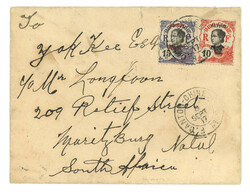 To
Yak Kee Esq
c/o Mr Longfoon
209 Relief Street
Maritzburg Natal
South Africa
10
SEPT
17